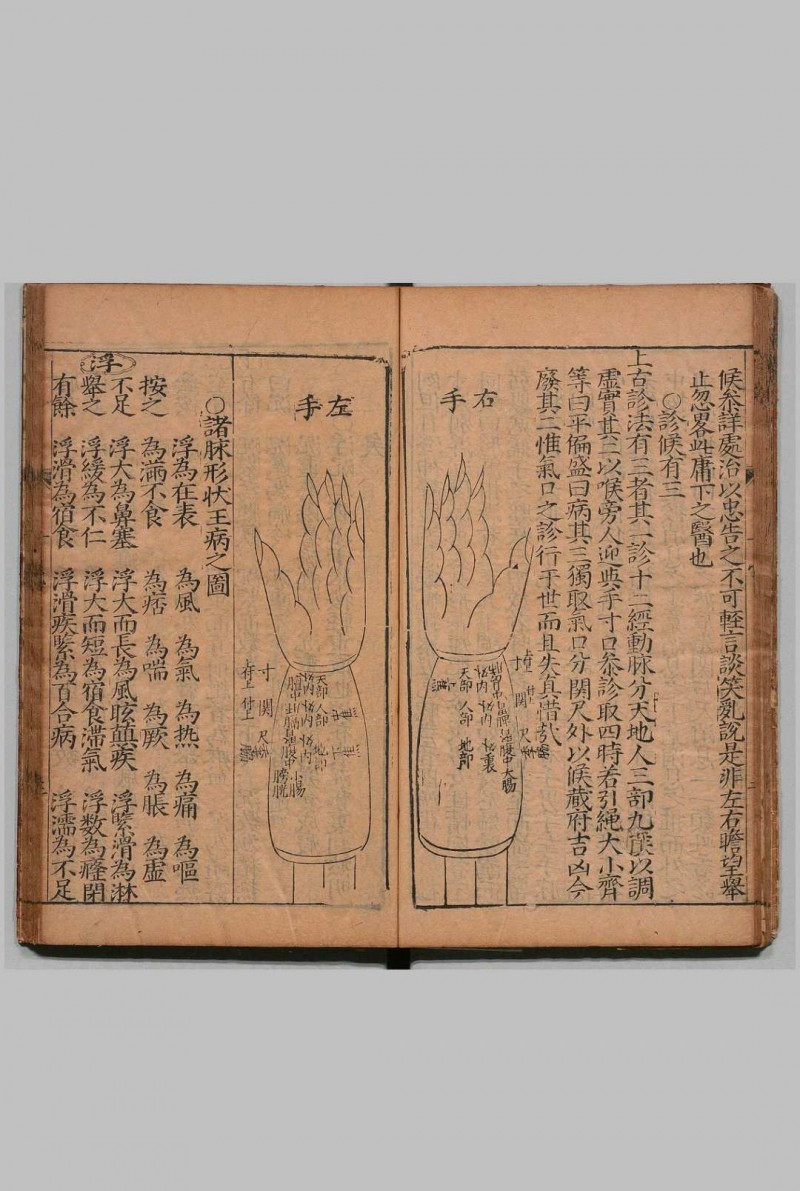 候叅詳處治以忠告之不可輕言談笑亂說是非左右瞻望舉
止忽畧此庸下之醫也
○診候有三
上古診法有三者其一診十二經動脉分天地人三部九候以調
虛實其二以喉旁人迎與手寸口叅診取四時若引繩大小齊
等曰平偏盛曰病其三獨取氣口分関尺外以候蔵府吉凶今
廢其二惟氣口之診行于世而且失真惜哉
右手
寸
関
尺
大腸
天部
人部
地部
左手
寸
関
尺
天部
人部
地部
小腸
膀胱
○諸脉形狀王病之圖
浮為在表 為風 為氣 為热 為痛 為嘔
按之 為滿不食 為痞 為喘 為厥 為脹 為虛
不足 浮大為鼻塞 浮大而長為風眩蕷疾 浮緊滑為淋
浮
舉之 浮緩為不仁 浮大而短為宿食滯氣 浮数為癃閉
有餘 浮滑為宿食 浮滑疾緊為百合病 浮濡為不足